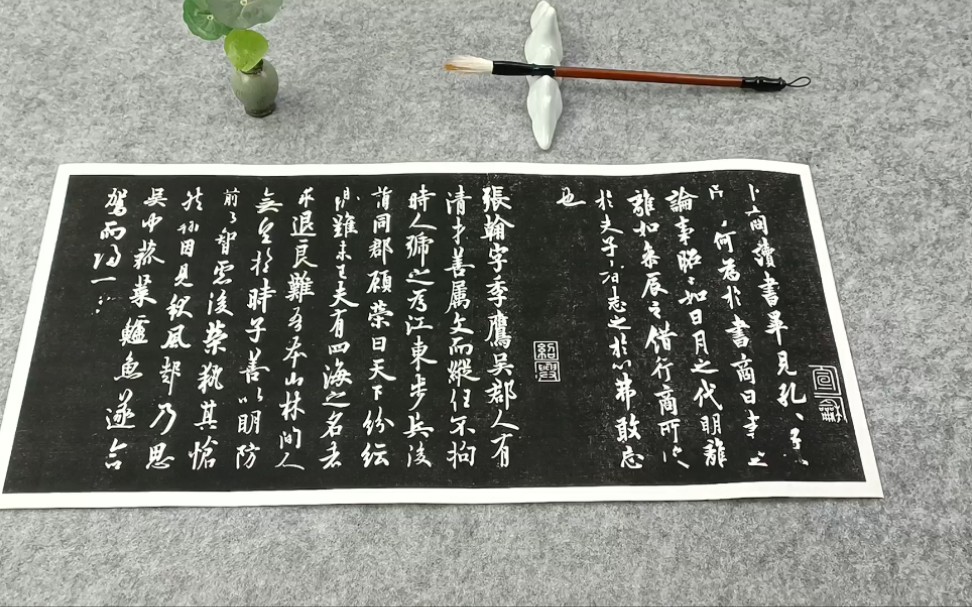 卜商讀書畢見孔子
何為於書商曰書之
論事昭々如日月之代明離
離如參辰之錯行商所
於夫子志之於心弗敢忘
也
紹興
張翰字季鷹吳郡人有
清才善属文而縱任不拘
時人號之為江東步兵後
謂同郡顧榮曰天下紛紜
難未已夫有四海之名者
求退良難吾本山林間人
無望於時子善以明防
前以智慮後榮執其愴
然翰因見秋風起乃思
吳中菰菜鱸魚遂命
駕而歸